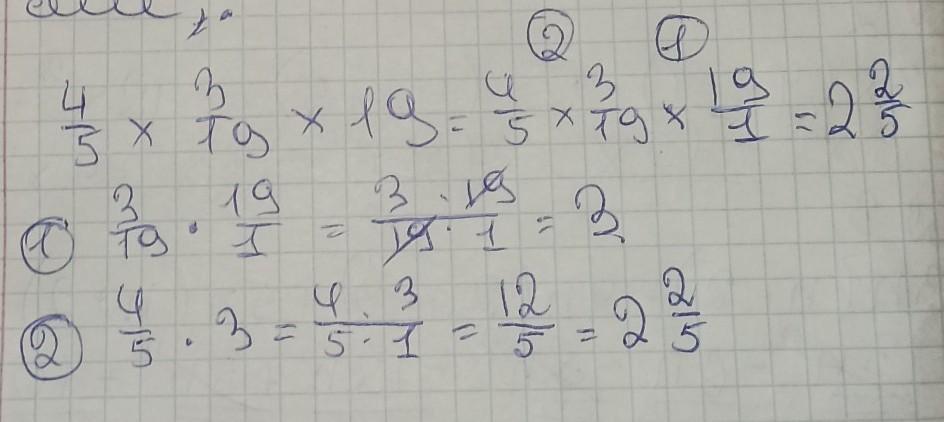 ② ①
4/5 × 3/19 × 19 = 4/5 × 3/19 × 19/1 = 2 2/5
① 3/19 · 19/1 = 3 · 19/19 · 1 = 3
② 4/5 · 3 = 4 · 3/5 · 1 = 12/5 = 2 2/5